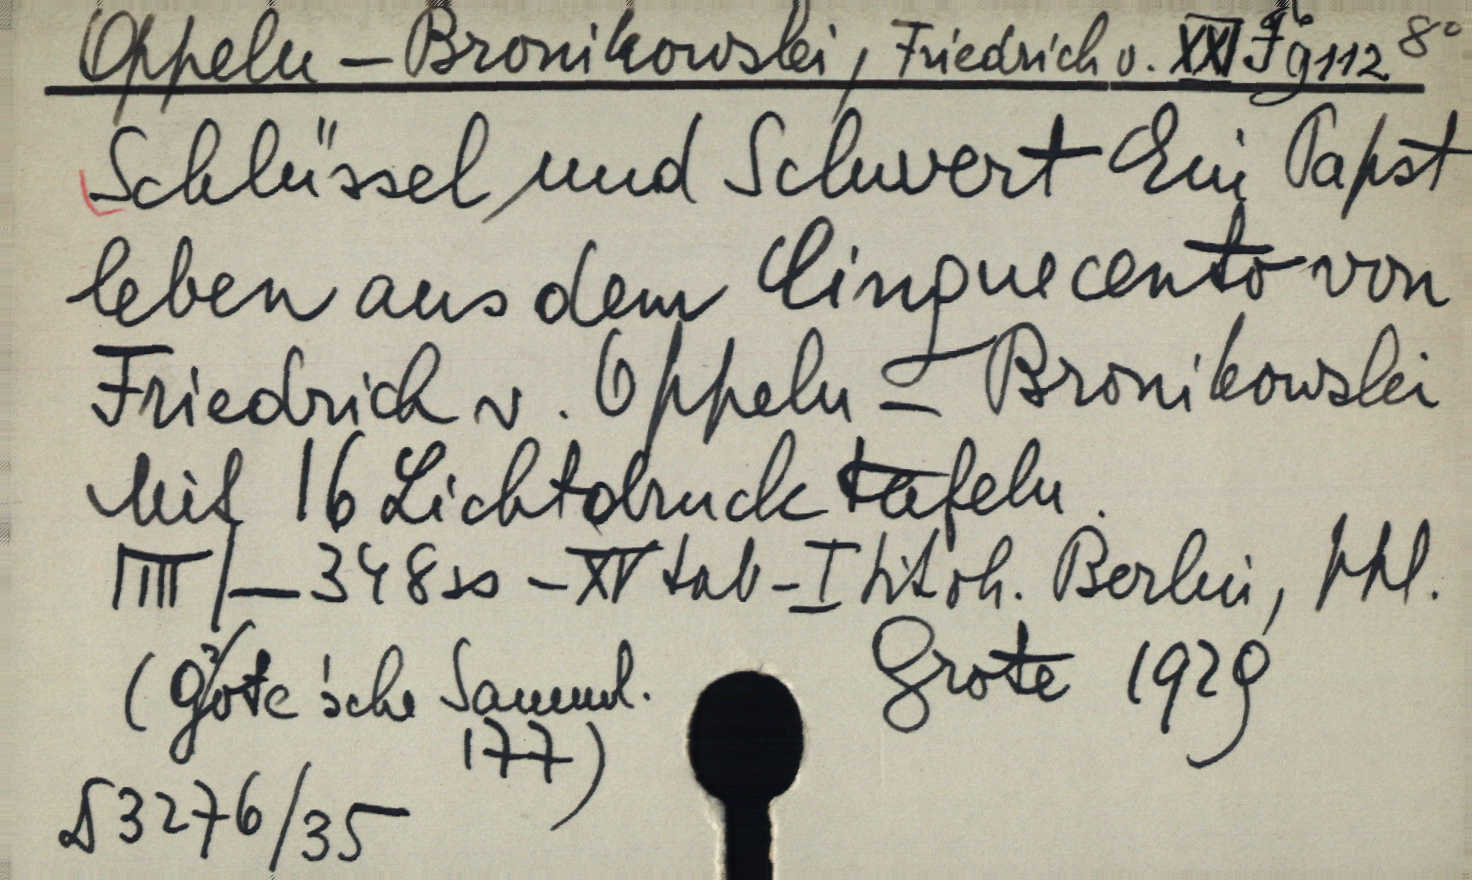 Oppeln-Bronikowski, Friedrich v. XXI Jg 112 8°
Schlüssel und Schwert Ein Papst
leben aus dem Cinquecento von
Friedrich v. Oppeln=Bronikowski
Mit 16 Lichtdrucktafeln.
IIII/—348 ss —XV tab—I Berlin,
(Grote'sche Samml. Grote 1929
177)
D 3276/35